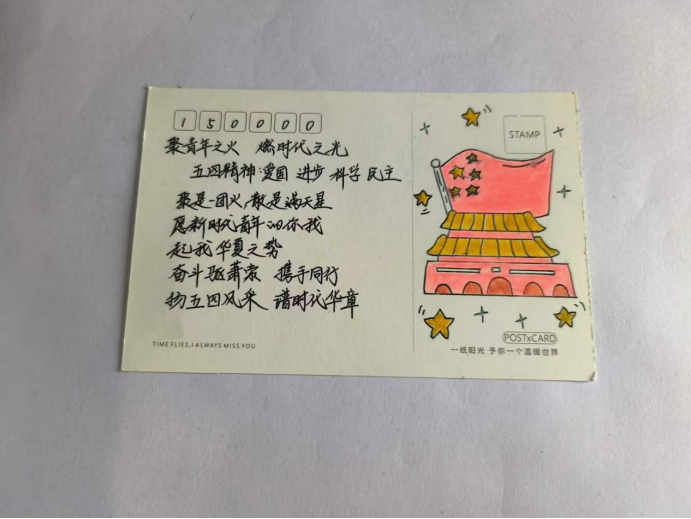 150000
聚青年之火 燃时代之光
五四精神:爱国 进步 科学 民主
聚是一团火,散是满天星
愿新时代青年的你我
起我华夏之势
奋斗驱萧索 携手同行
扬五四风采 谱时代华章
TIME FLIES,I ALWAYS MISS YOU
STAMP
POSTxCARD
一纸阳光 予你一个温暖世界